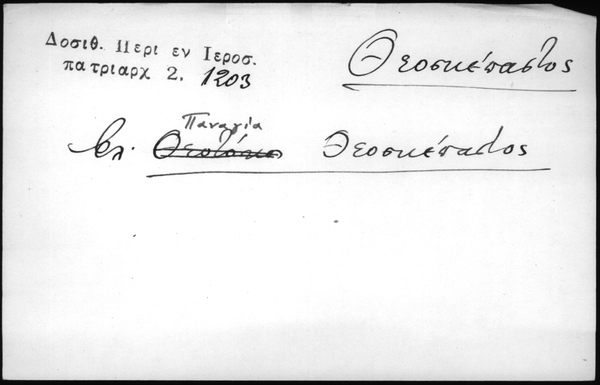 Δοσιθ. Περι εν Ιεροσ.
πατριαρχ 2. 1203
Θεοσκέπαστος
Παναγία
βλ. Θεοσκέπαστος